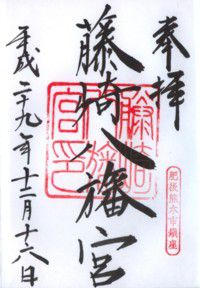 奉拝
藤崎八旛宮
平成二十九年十二月十六日
藤崎
八旛
宮印
肥後熊本市鎮座